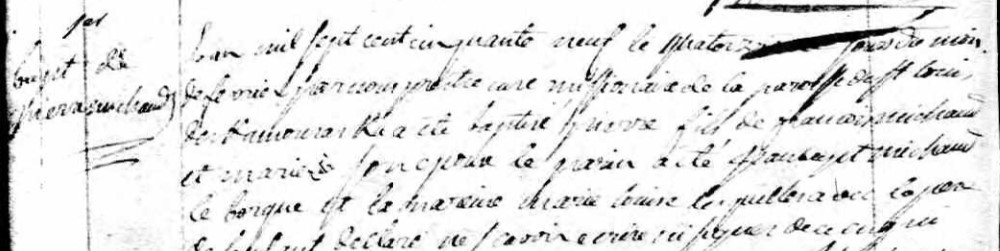 Bapt de
pierre michaud
Lan mil sept cent cinquante neuf le quatorzieme jour du mois
de fevrier par nous prestre curé missionaire de la paroisse de st louis
de Kamouraska a eté baptisé pierre fils de francois michaud
et marie son epouse le parain a eté michaud
le borgne et la mareine marie louise avec le pere
de lenfant declaré ne scavoir ecrire ni signer de ce enqui